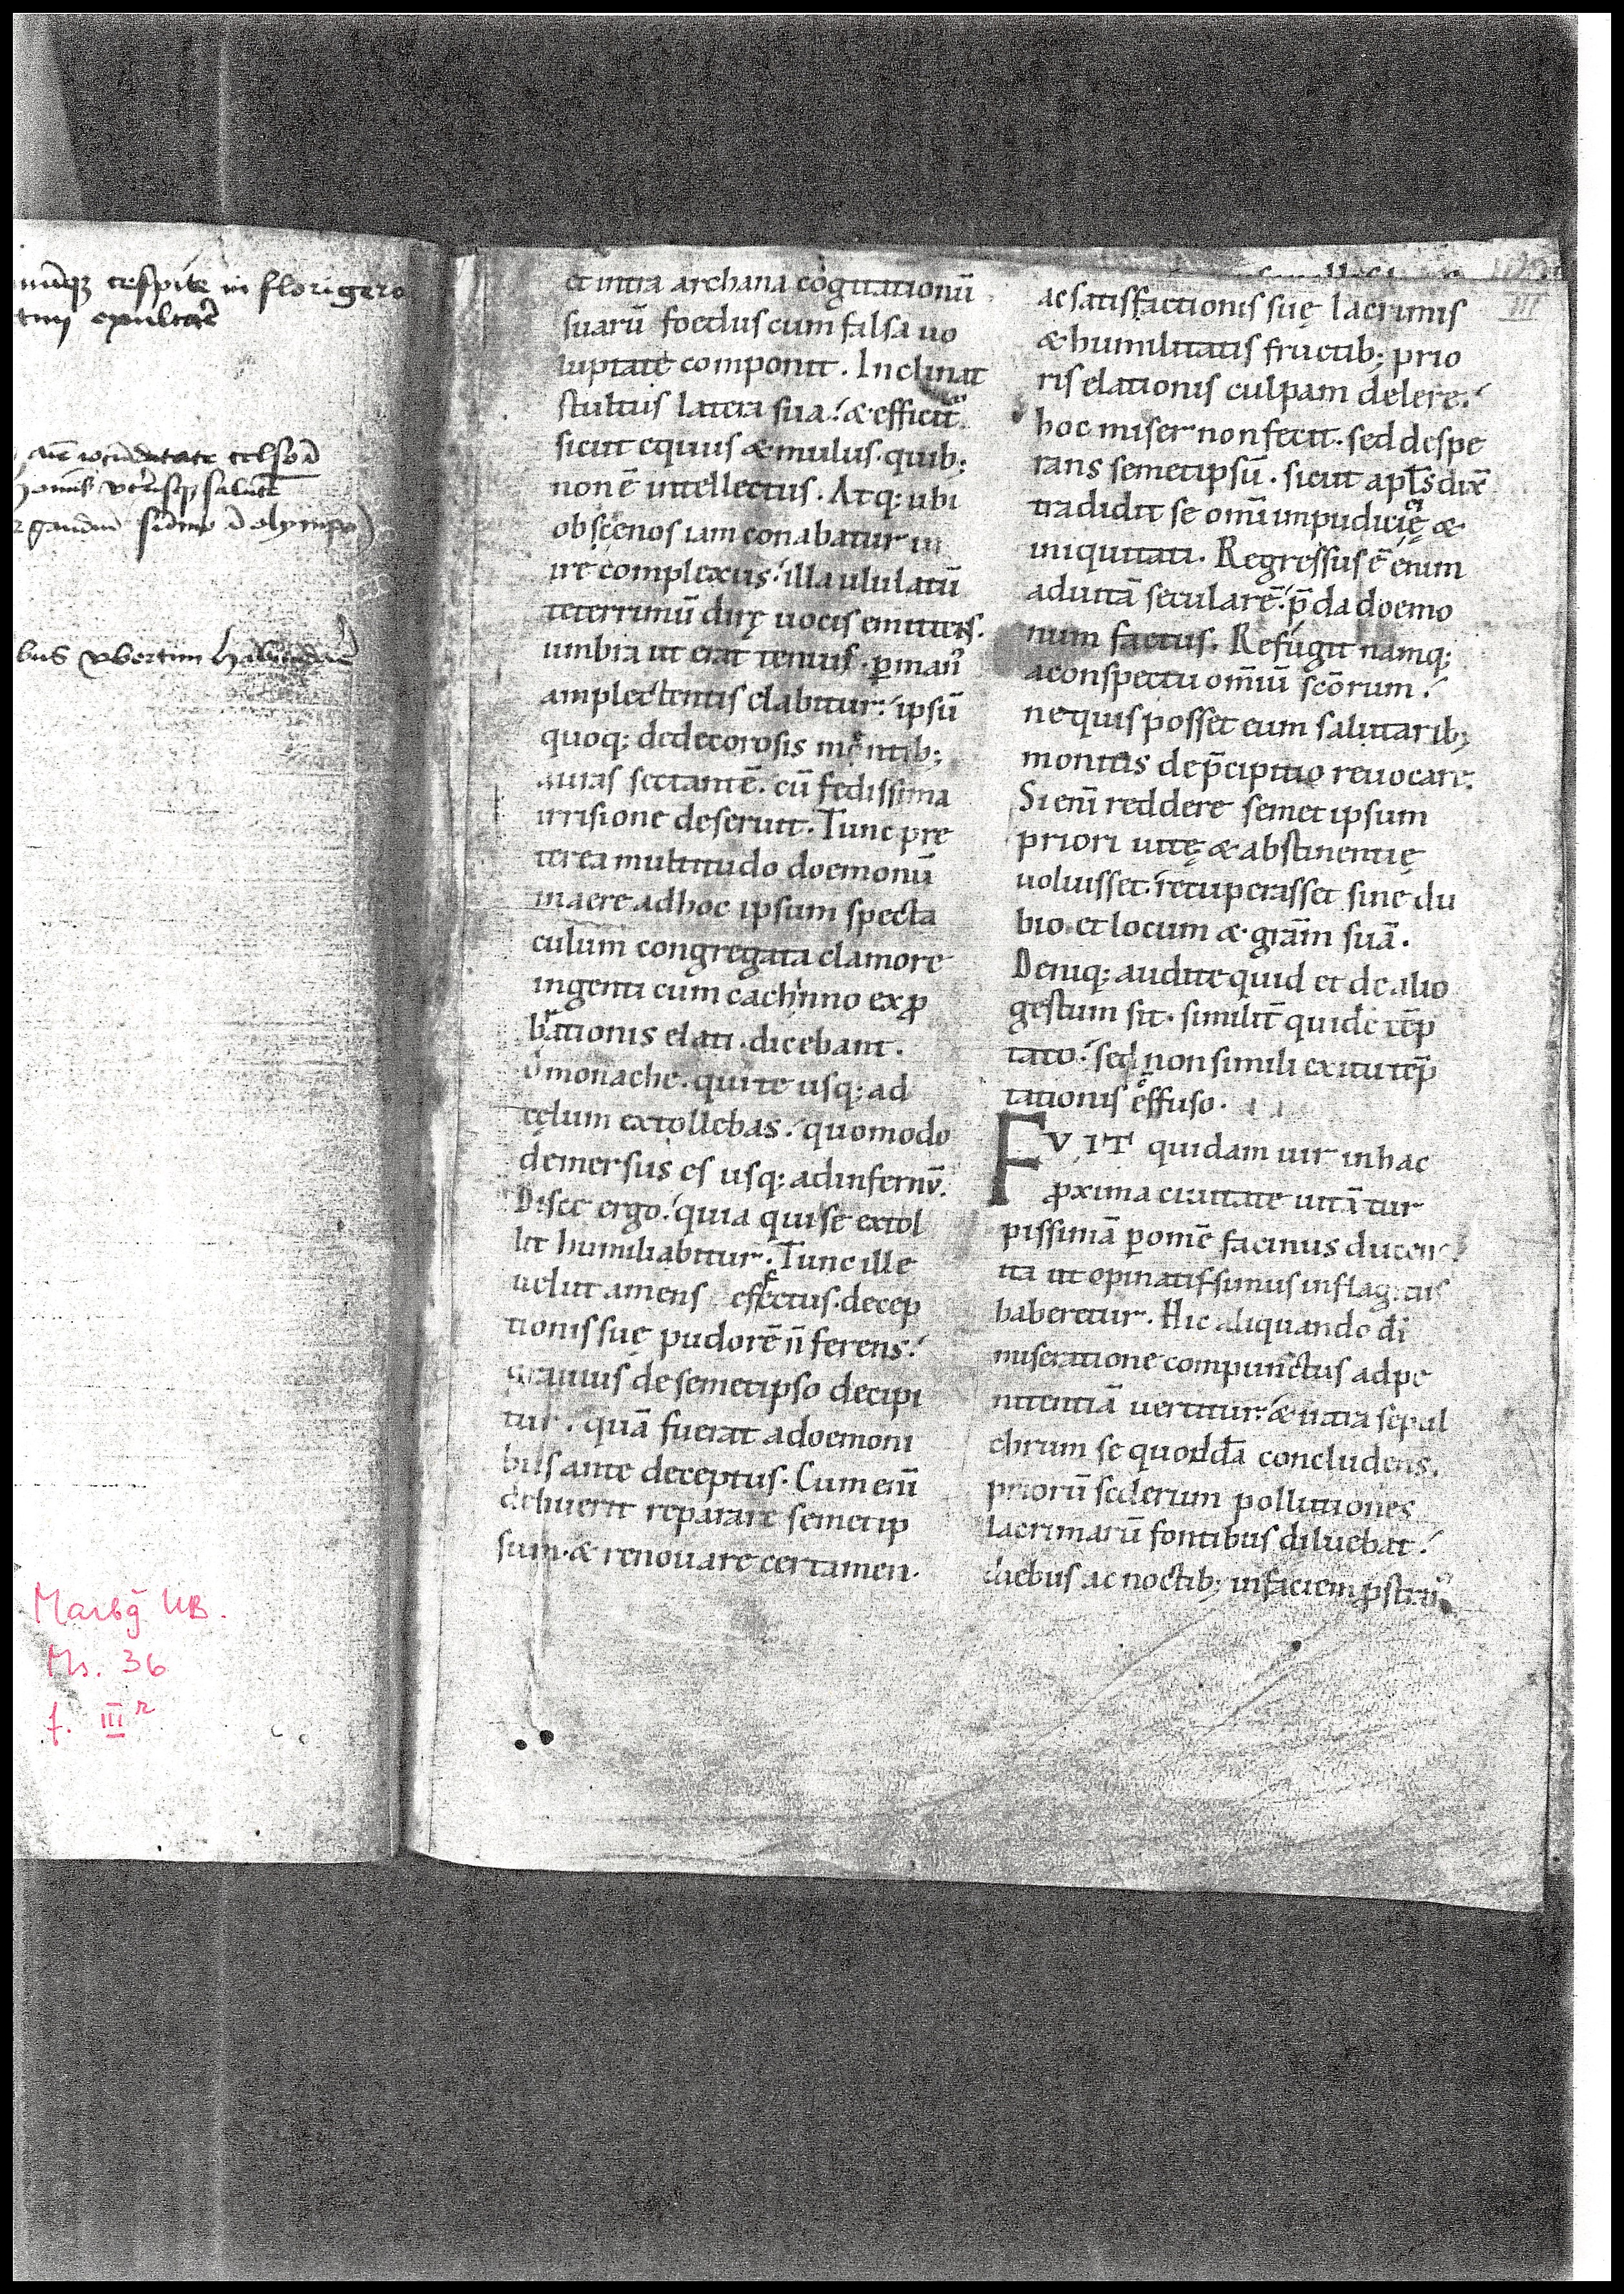 cespite in florigero
bus ubertim
Marbg UB.
Ms. 36
f. III r
III
et intra archana cogitationū
suarū foedus cum falsa uo
luptate componit. Inclinat
stultus latera sua. & efficit᷑
sicut equus & mulus. quib;
non ē intellectus. Atq; ubi
obscenos iam conabatur in
ire complexus. illa ululatū
teterrimū dirę uocis emittens.
umbra ut erat tenuis. ꝑ man᷒
amplectentis elabitur. ipsū
quoq; dedecorosis motib;
auras sectantē. cū fedissima
irrisione deseruit. Tunc pre
terea multitudo doemonū
in aere adhoc ipsum specta
culum congregata clamore
ingenti cum cachinno exꝓ
bationis elati. dicebant.
O monache. qui te usq; ad
cęlum extollebas. quomodo
demersus es usq; ad infernū.
Disce ergo. quia qui se extol
lit humiliabitur. Tunc ille
uelut amens effectus. decep
tionis suę pudorē n̄ ferens.
grauius de semetipso decipi
tur. quā fuerat a doemoni
bus ante deceptus. Cum eni̅
debuerit reparare semetip
sum. & renouare certamen.
ac satisfactionis suę lacrimis
& humilitatis fructib; prio
ris elationis culpam delere.
hoc miser non fecit. sed despe
rans semetipsū. sicut apłs dix̄
tradidit se omī impudicicię &
iniquitati. Regressus ē enim
ad uitā secularē. p̄da doemo
num factus. Refugit namq;
a conspectu omniū scōrum.
ne quis posset eum salutarib;
monitis de p̄cipitio reuocare.
Si enī reddere semet ipsum
priori uitę & abstinentię
uoluisset. recuperasset sine du
bio et locum & grām suā.
Deniq; audite quid et de alio
gestum sit. similit̄ quidē tēp
tato. sed non simili exitu tēp
tationis effuso.
FVIT quidam uir in hac
ꝓxima ciuitate uitā tur
pissimā ꝑ omē facinus ducens
ita ut opinatissimus in flagitiis
haberetur. Hic aliquando di̅
miseratione compunctus ad pe
nitentiā uertitur. & intra sepul
chrum se quoddā concludens.
priorū scelerum pollutiones
lacrimarū fontibus diluebat.
diebus ac noctib; in faciem ꝓstrat᷒